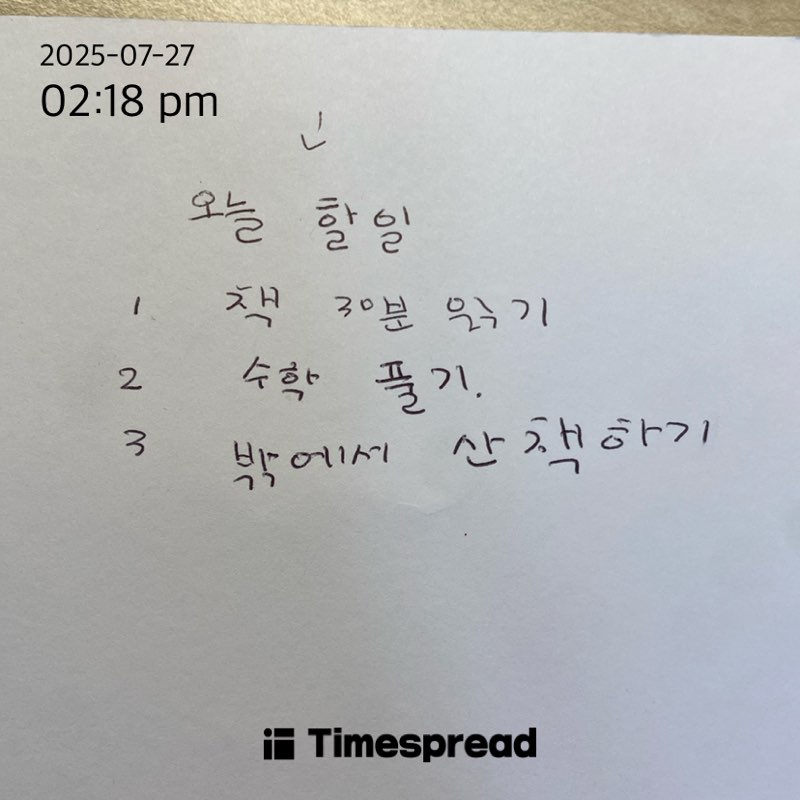 2025-07-27
02:18 pm
오늘 할일
1 책 30분 읽기
2 수학 풀기.
3 밖에서 산책하기
Timespread